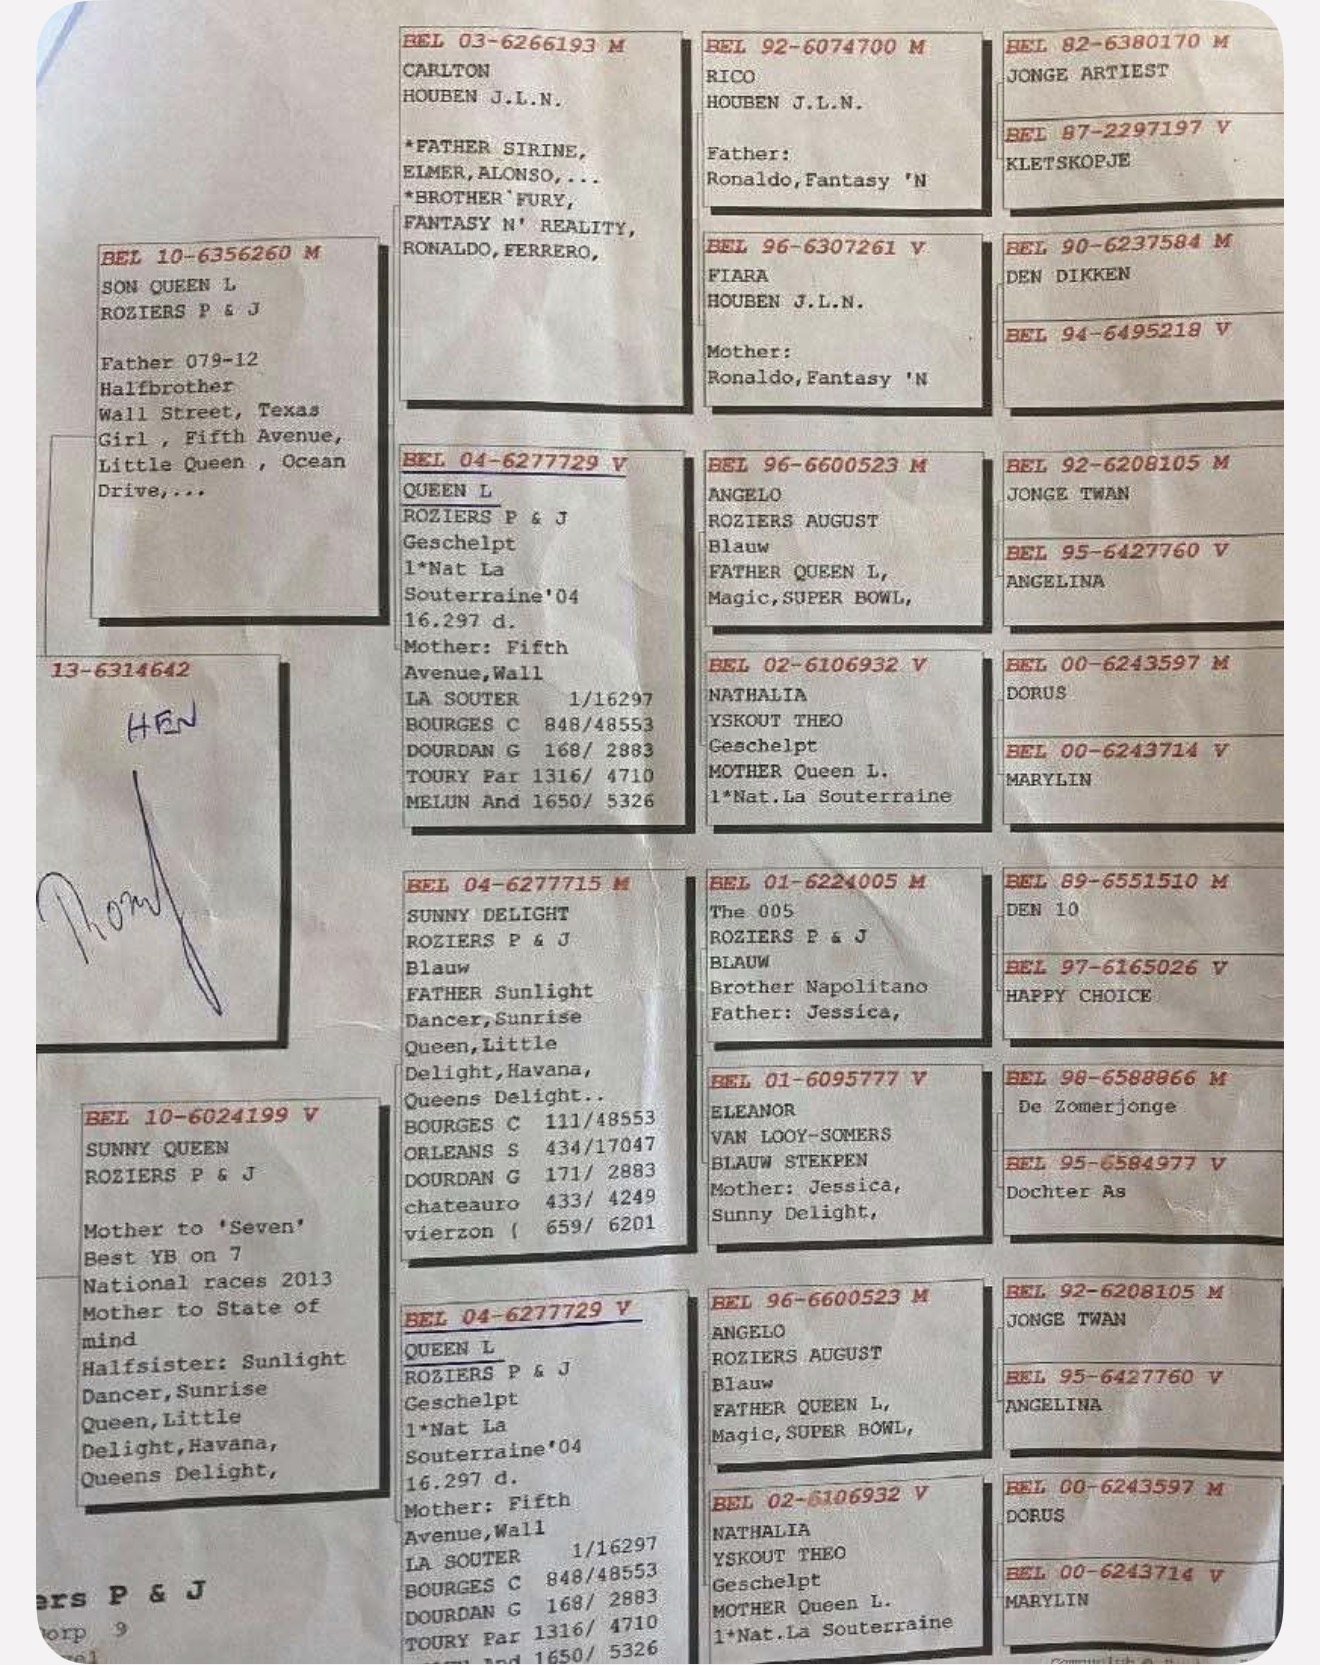 BEL 10-6356260 M
SON QUEEN L
ROZIERS P & J
Father 079-12
Halfbrother
Wall Street, Texas
Girl , Fifth Avenue,
Little Queen , Ocean
Drive,...
13-6314642
HEN
BEL 10-6024199 V
SUNNY QUEEN
ROZIERS P & J
Mother to 'Seven'
Best YB on 7
National races 2013
Mother to State of
mind
Halfsister: Sunlight
Dancer,Sunrise
Queen,Little
Delight,Havana,
Queens Delight,
ers P & J
orp 9
BEL 03-6266193 M
CARLTON
HOUBEN J.L.N.
*FATHER SIRINE,
ELMER,ALONSO,...
*BROTHER`FURY,
FANTASY N' REALITY,
RONALDO,FERRERO,
BEL 04-6277729 V
QUEEN L
ROZIERS P & J
Geschelpt
1*Nat La
Souterraine'04
16.297 d.
Mother: Fifth
Avenue,Wall
LA SOUTER 1/16297
BOURGES C 848/48553
DOURDAN G 168/ 2883
TOURY Par 1316/ 4710
MELUN And 1650/ 5326
BEL 04-6277715 M
SUNNY DELIGHT
ROZIERS P & J
Blauw
FATHER Sunlight
Dancer,Sunrise
Queen,Little
Delight,Havana,
Queens Delight..
BOURGES C 111/48553
ORLEANS S 434/17047
DOURDAN G 171/ 2883
chateauro 433/ 4249
vierzon ( 659/ 6201
BEL 04-6277729 V
QUEEN L
ROZIERS P & J
Geschelpt
1*Nat La
Souterraine'04
16.297 d.
Mother: Fifth
Avenue,Wall
LA SOUTER 1/16297
BOURGES C 848/48553
DOURDAN G 168/ 2883
TOURY Par 1316/ 4710
And 1650/ 5326
BEL 92-6074700 M
RICO
HOUBEN J.L.N.
Father:
Ronaldo,Fantasy 'N
BEL 96-6307261 V
FIARA
HOUBEN J.L.N.
Mother:
Ronaldo,Fantasy 'N
BEL 96-6600523 M
ANGELO
ROZIERS AUGUST
Blauw
FATHER QUEEN L,
Magic,SUPER BOWL,
BEL 02-6106932 V
NATHALIA
YSKOUT THEO
Geschelpt
MOTHER Queen L.
1*Nat.La Souterraine
BEL 01-6224005 M
The 005
ROZIERS P & J
BLAUW
Brother Napolitano
Father: Jessica,
BEL 01-6095777 V
ELEANOR
VAN LOOY-SOMERS
BLAUW STEKPEN
Mother: Jessica,
Sunny Delight,
BEL 96-6600523 M
ANGELO
ROZIERS AUGUST
Blauw
FATHER QUEEN L,
Magic,SUPER BOWL,
BEL 02-6106932 V
NATHALIA
YSKOUT THEO
Geschelpt
MOTHER Queen L.
1*Nat.La Souterraine
BEL 82-6380170 M
JONGE ARTIEST
BEL 87-2297197 V
KLETSKOPJE
BEL 90-6237584 M
DEN DIKKEN
BEL 94-6495218 V
BEL 92-6208105 M
JONGE TWAN
BEL 95-6427760 V
ANGELINA
BEL 00-6243597 M
DORUS
BEL 00-6243714 V
MARYLIN
BEL 89-6551510 M
DEN 10
BEL 97-6165026 V
HAPPY CHOICE
BEL 98-6588866 M
De Zomerjonge
BEL 95-6584977 V
Dochter As
BEL 92-6208105 M
JONGE TWAN
BEL 95-6427760 V
ANGELINA
BEL 00-6243597 M
DORUS
BEL 00-6243714 V
MARYLIN